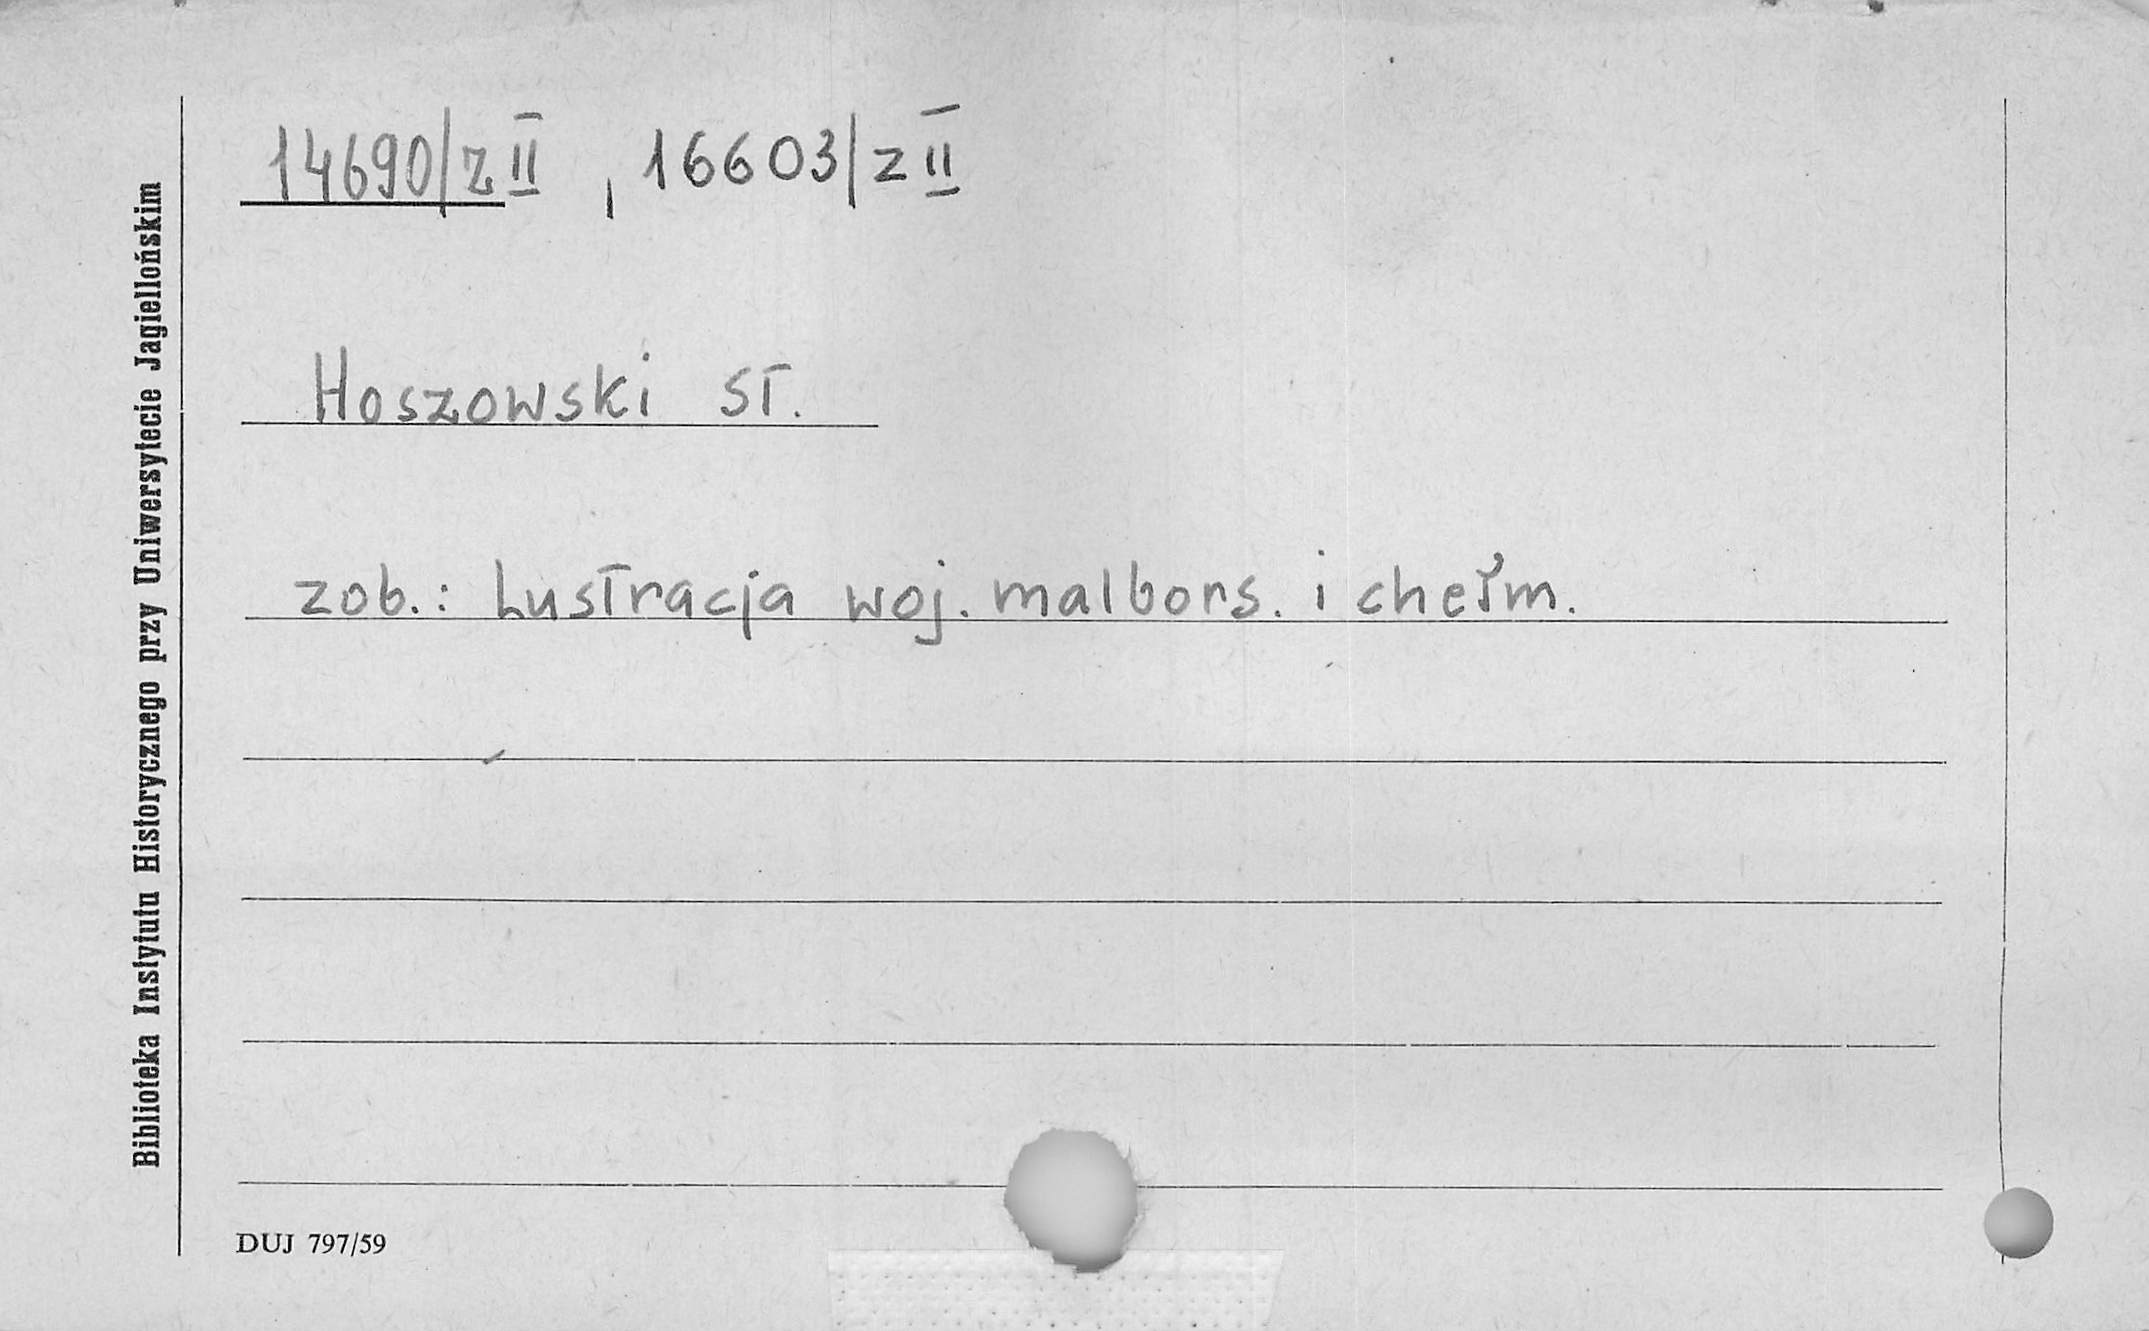 14690/z II , 16603/z II
Hoszowski St.
zob.: Lustracja woj. malbors. i chełm.
Biblioteka Instytutu Historycznego przy Uniwersytecie Jagiellońskim
DUJ 797/59